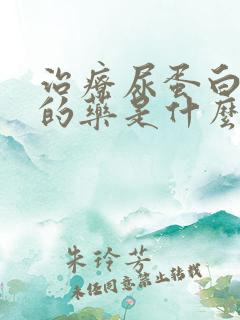 治療尿蛋白
的藥是什麼
朱玲芳
未经同意禁止转载